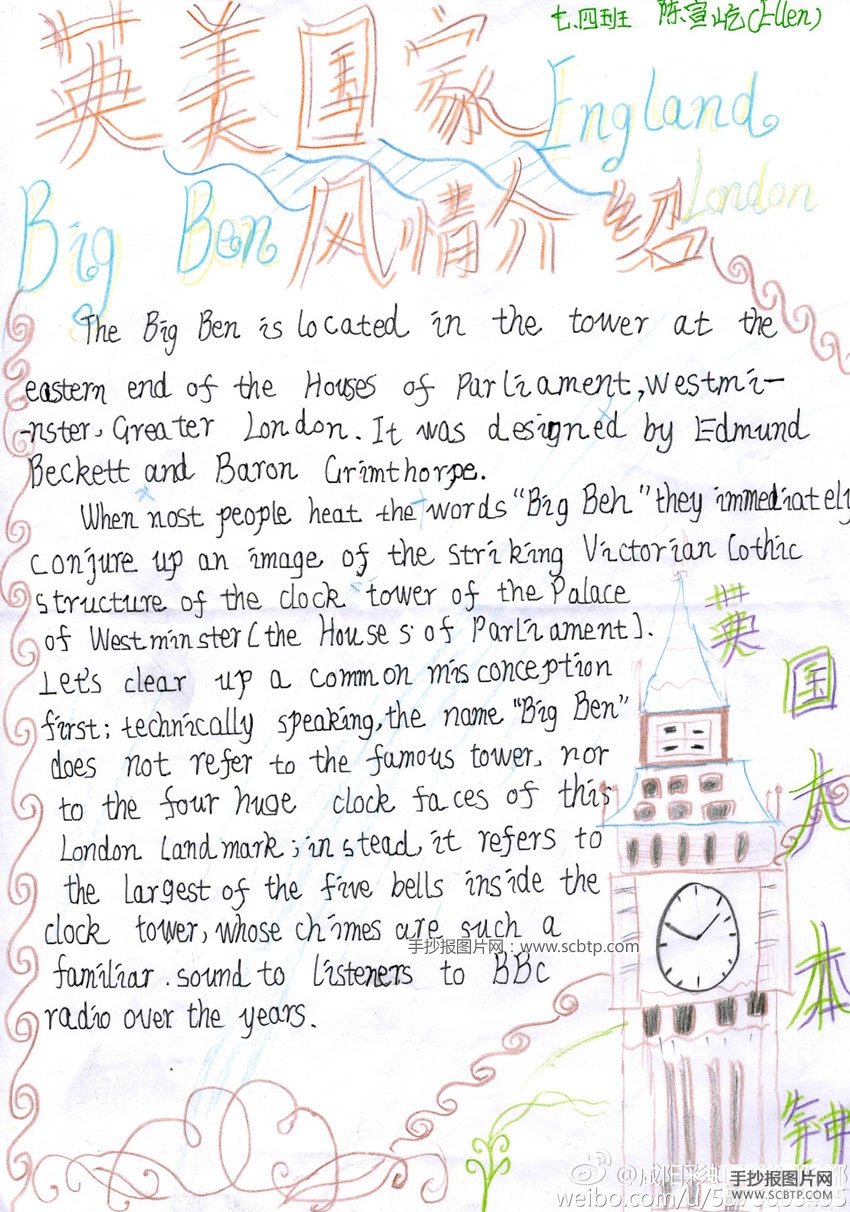 七.四班 陈宣屹(Ellen)
英美国家 England
London
Big Ben 风情介绍
The Big Ben is located in the tower at the
eastern end of the Houses of Parliament, Westmi-
-nster, Greater London. It was designed by Edmund
Beckett and Baron Grimthorpe.
When nost people heat the words "Big Beh" they immediately
conjure up an image of the striking Victorian Gothic
structure of the clock tower of the Palace
of Westminster [the Houses of Parliament].
Let's clear up a common misconception
first; technically speaking, the name "Big Ben"
does not refer to the famous tower, nor
to the four huge clock faces of this
London Landmark; instead, it refers to
the largest of the five bells inside the
clock tower, whose chimes are such a
familiar. sound to listeners to BBC
radio over the years.
英
国
大
本
钟
手抄报图片网：www.scbtp.com
@咸阳彩虹
weibo.com/u/5
手抄报图片网
WWW.SCBTP.COM